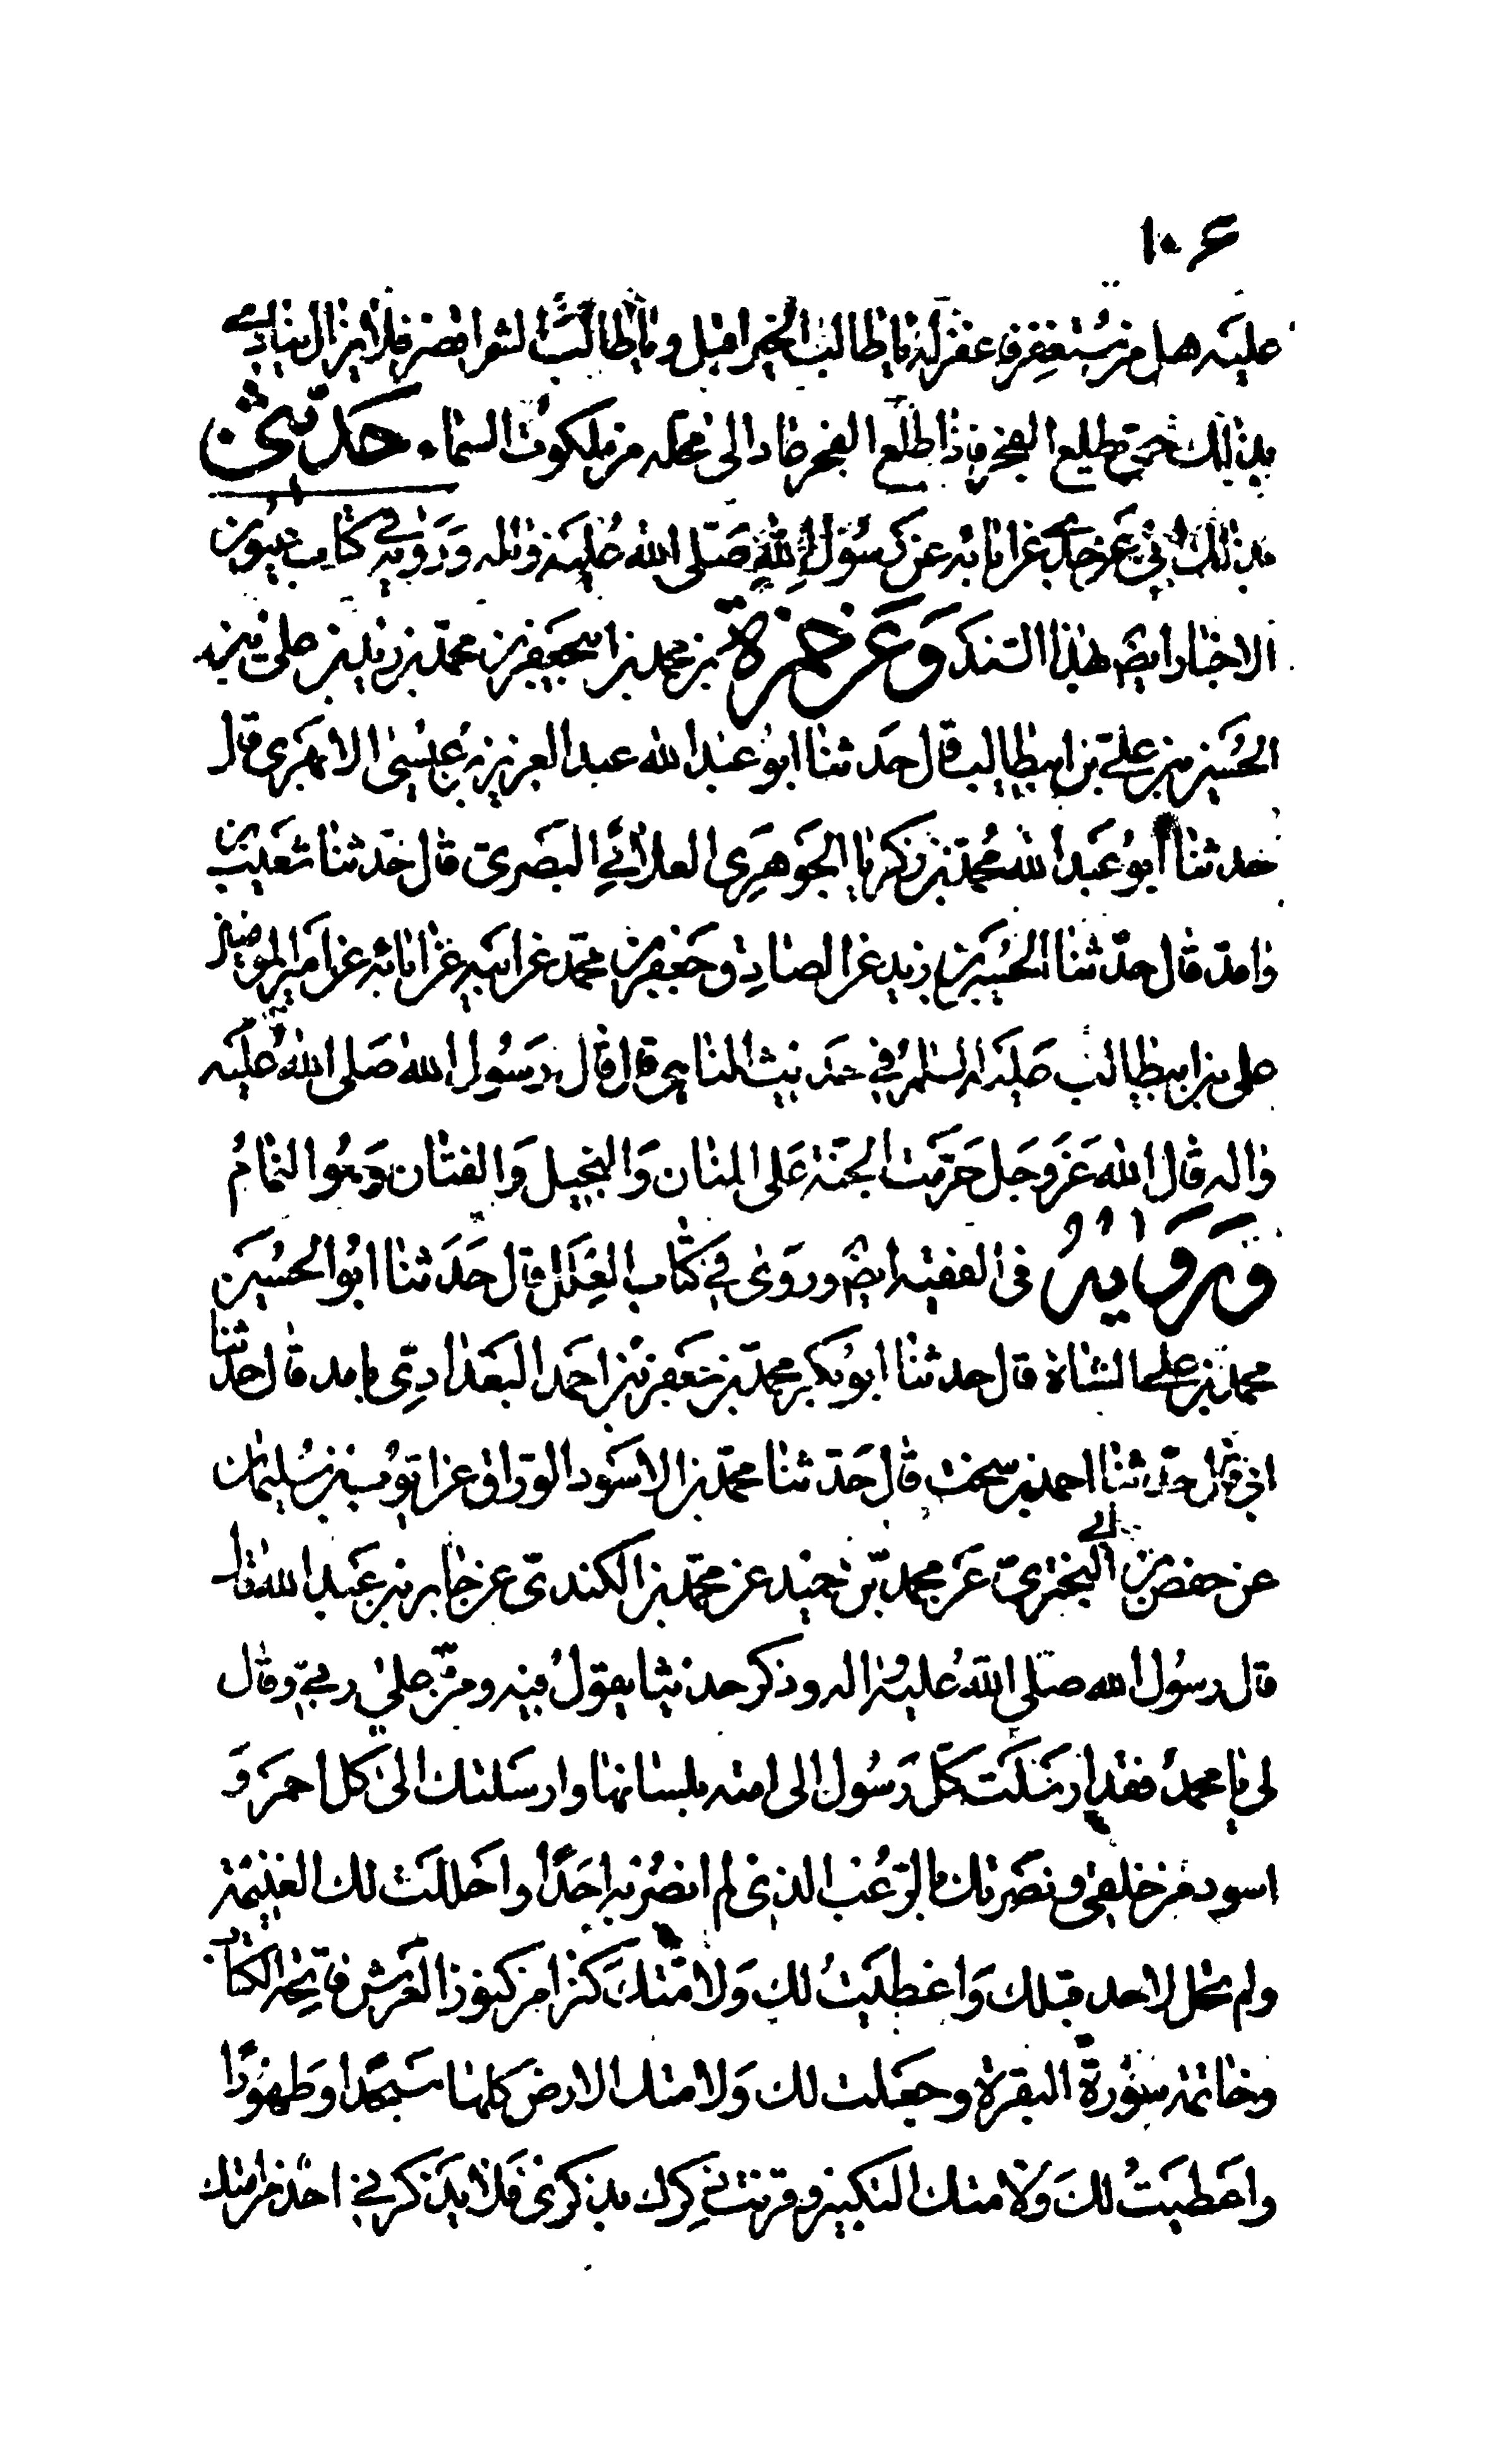 ١٠۶
عليه هل من مستغفر فاغفر له يا طالب الخير اقبل ويا طالب الشر اقصر فلا يزال ينادي
بذلك حتى يطلع الفجر فاذا طلع الفجر عاد الى محله من ملكوت السماء حدثني
بذلك ابي عن جدي عن ابائه عن رسول الله صلى الله عليه واله ورويه في كتاب عيون
الاخبار ايضا بهذا السند وعن حمزة بن محمد بن احمد بن جعفر بن محمد بن زيد بن علي بن
الحسين بن علي بن ابيطالب قال حدثنا ابو عبد الله عبد العزيز بن عيسى الابهري قال
حدثنا ابو عبد الله محمد بن زكريا الجوهري الغلابي البصري قال حدثنا شعيب بن
واقد قال حدثنا الحسين بن زيد عن الصادق جعفر بن محمد عن ابيه عن ابائه عن امير المومنين
علي بن ابيطالب عليه السلم في حديث المناهي قال قال رسول الله صلى الله عليه
واله قال الله عز وجل حرمت الجنة على المنان والبخيل والفتان وهو النمام
ورواه في الفقيه ايضا وروى في كتاب العلل قال حدثنا ابو الحسين
محمد بن علي الشاة قال حدثنا ابو بكر محمد بن جعفر بن احمد البغدادي بامد قال حدثنا
ابي قال حدثنا احمد بن سخت قال حدثنا محمد بن الاسود الوراق عن ايوب بن سليمان
عن حفص بن ابي البختري عن محمد بن حميد عن محمد بن الكندي عن جابر بن عبد الله قال
قال رسول الله صلى الله عليه واله وذكر حديثا يقول فيه ومن علي ربي وقال
لي يا محمد فقد ارسلت كل رسول الى امته بلسانها وارسلتك الى كل احمر و
اسود من خلقي ونصرتك بالرعب الذي لم انصر به احدا واحللت لك الغنيمة
ولم تحل لاحد قبلك واعطيت لك ولامتك كنزا من كنوز العرش فاتحة الكتاب
وخاتمة سورة البقرة وجعلت لك ولامتك الارض كلها مسجدا وطهورا
واعطيت لك ولامتك التكبير وقرنت ذكرك بذكري فلا يذكرني احد من امتك